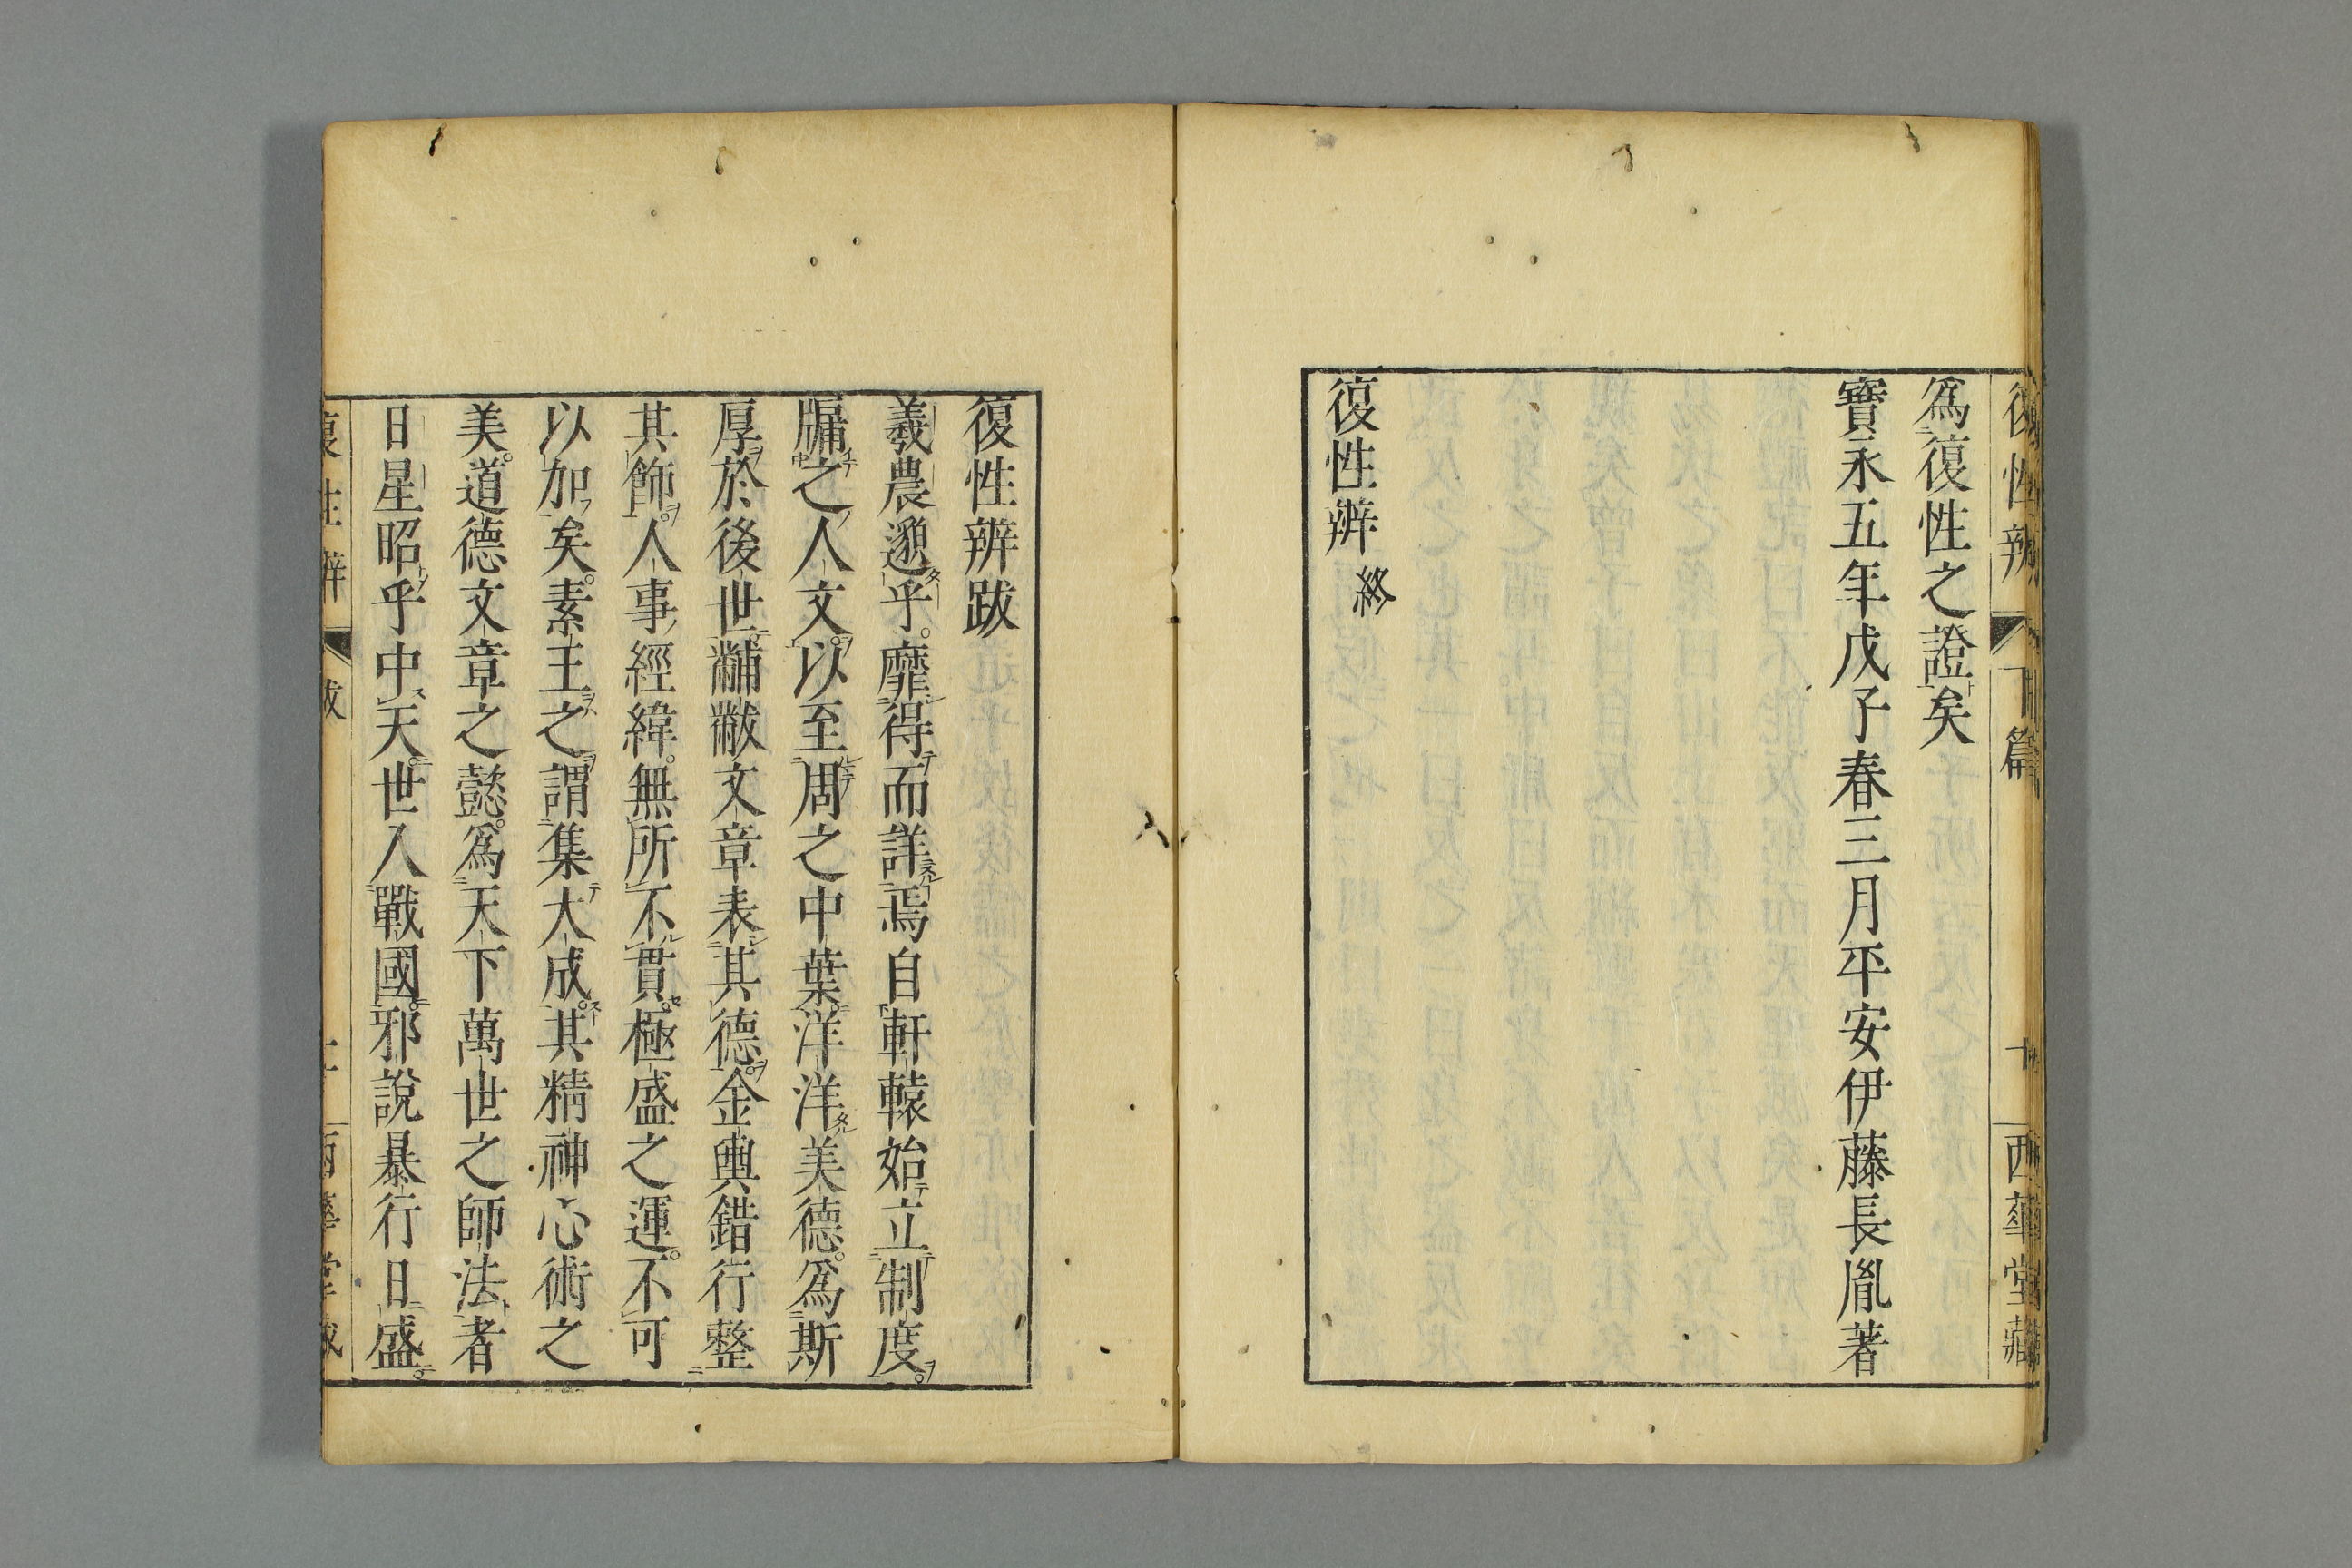 復性辨 下篇 十 西華堂藏
爲復性之證矣
寶永五年戊子春三月平安伊藤長胤著
復性辨終
復性辨跋
羲農邈乎。靡得而詳焉自軒轅始立制度。
牖之人文。以至周之中葉。洋洋美德。爲斯
厚於後世。黼黻文章表其德。金輿錯行整
其飾。人事經緯。無所不貫。極盛之運。不可
以加矣。素王之謂集大成。其精神心術之
美。道德文章之懿。爲天下萬世之師法者
日星昭乎中天。世入戰國。邪說暴行日盛。